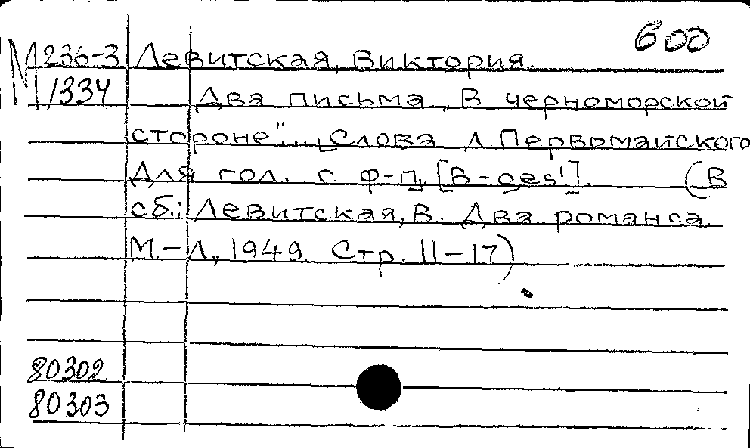 600
М 236-3 Левитская, Виктория.
1334 Два письма „В черноморской
стороне"... Слова Л. Первомайского
Для гол. с ф-п, [B-ces¹]. (В
сб.: Левитская, В. Два романса.
М.-Л., 1949. Стр. 11-17)
80302
80303